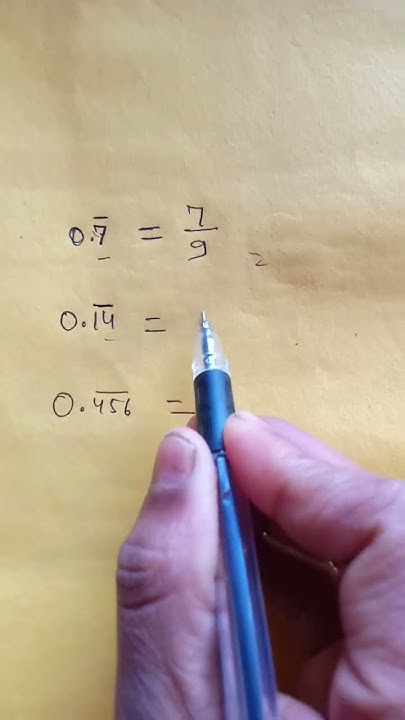 0.7̅ = 7/9 2
0.1̅4̅ =
0.4̅5̅6̅ =